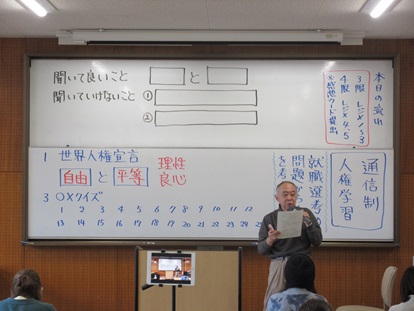 聞いて良いこと と
聞いていけないこと ①
②
本日の提出
3限 レジメ1〜3
4限 レジメ4,5
※感想カード提出
1 世界人権宣言
自由 と 平等
理性
良心
3 ○×クイズ
1 2 3 4 5 6 7 8 9 10 11 12
13 14 15 16 17 18 19 20 21 22 23 24
就職選考
問題から
を考
通信制
人権学習